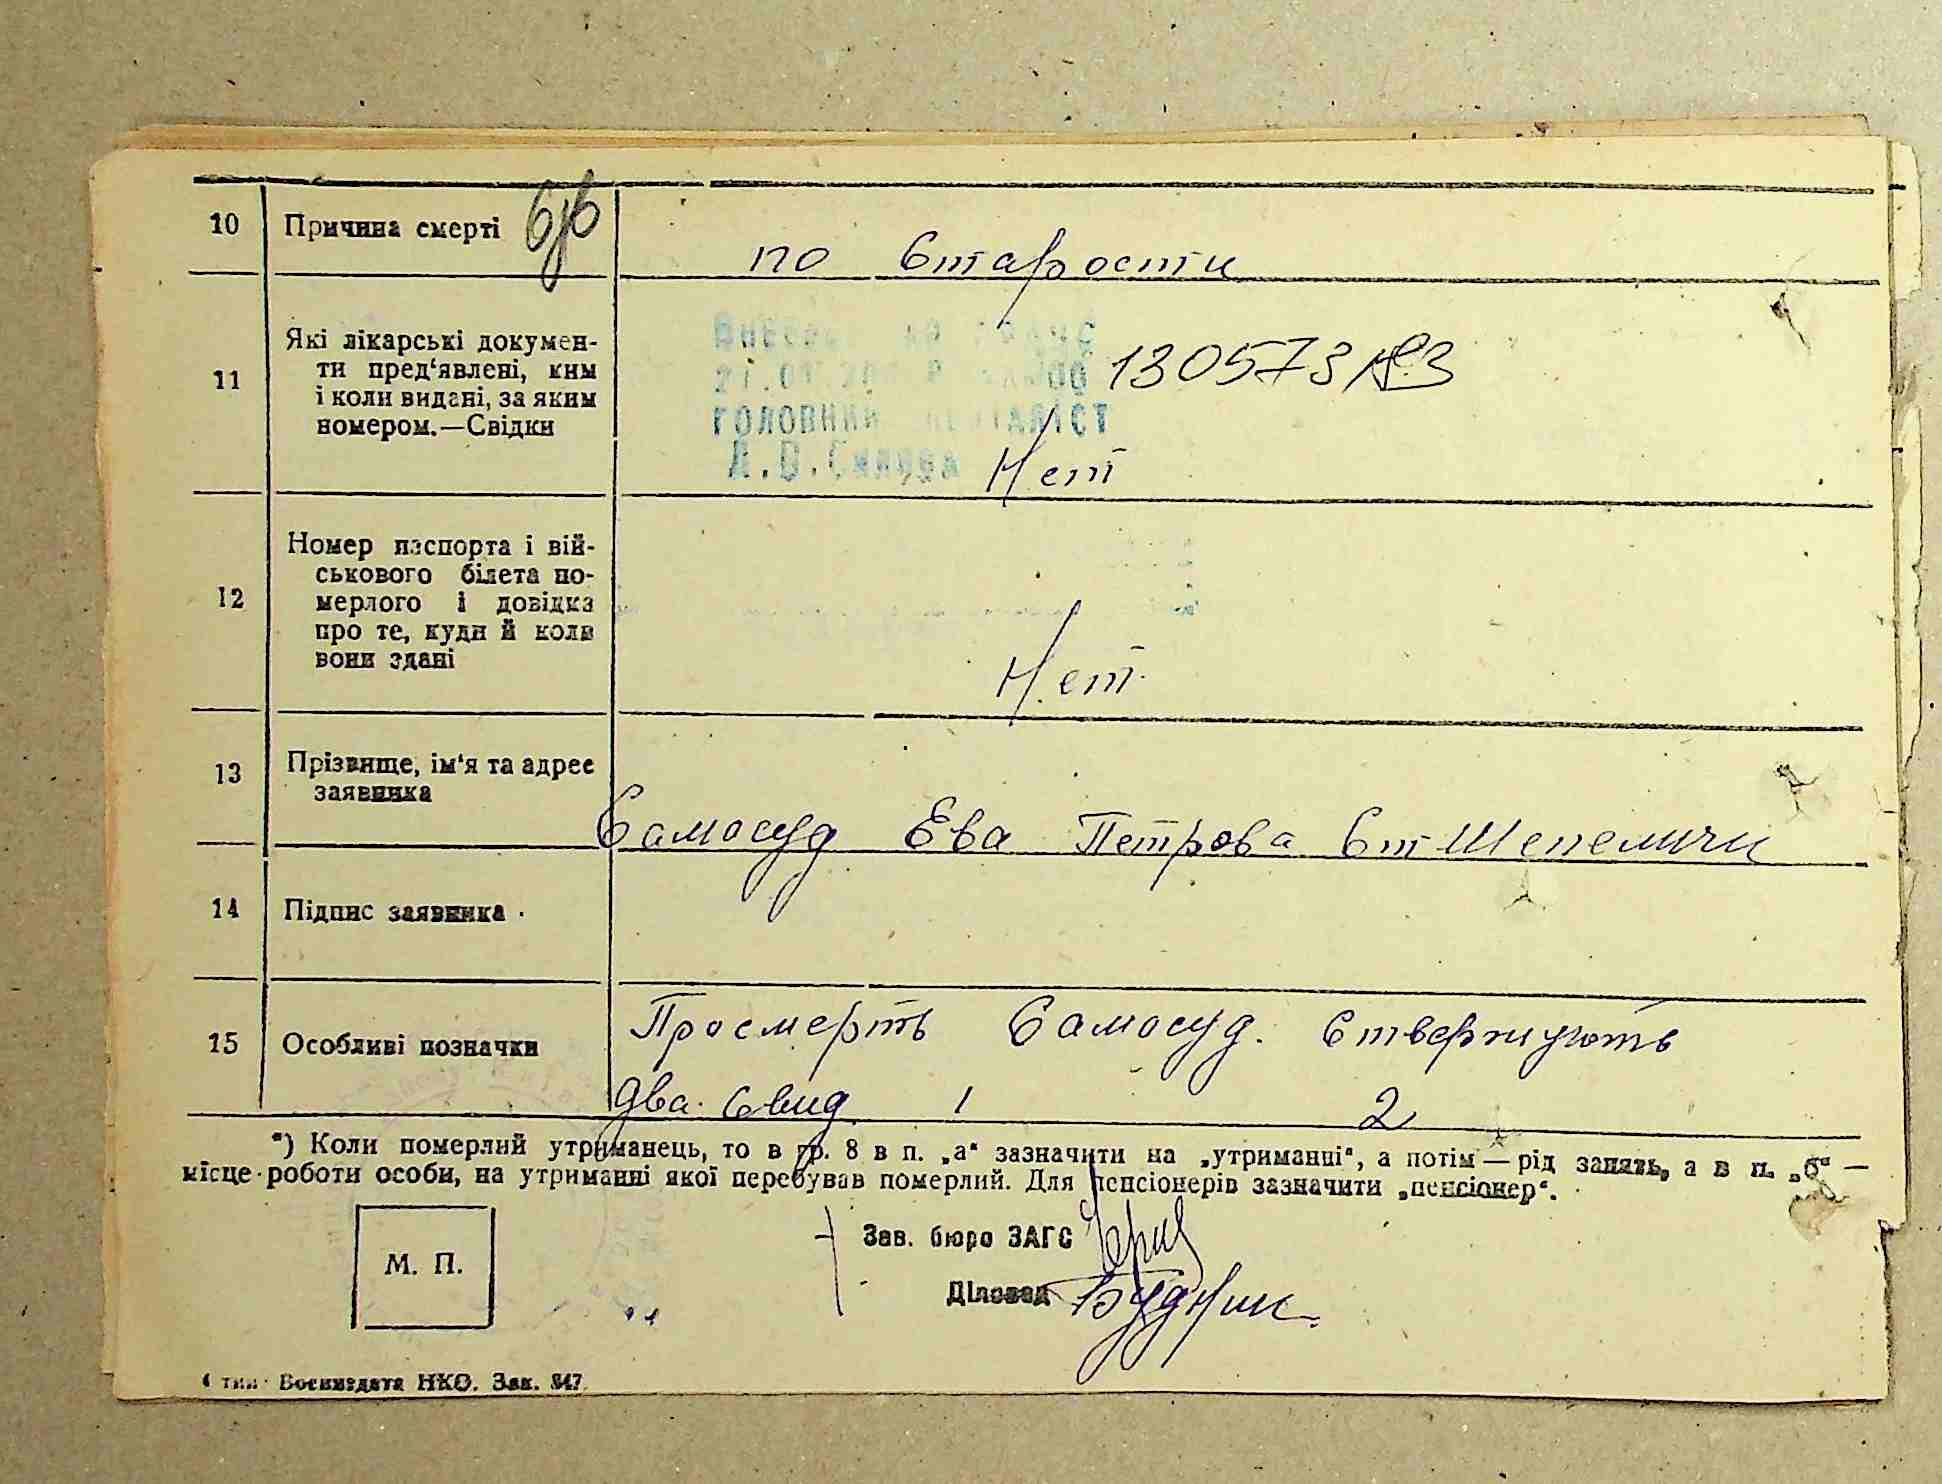 10 Причина смерті
по Старости
11 Які лікарські докумен-
ти пред‘явлені, ким
і коли видані, за яким
номером.—Свідки
130573 №3
ГОЛОВНИЙ
Нет
12 Номер паспорта і вій-
ськового білета по-
мерлого і довідка
про те, куди й коли
вони здані
Нет
13 Прізвище, ім‘я та адрес
заявника
Самосуд Ева Петрова Ст Шепеличи
14 Підпис заявника
15 Особливі позначки
Просмерть Самосуд. Ствержують
два. Свид 1 2
*) Коли померлий утриманець, то в гр. 8 в п. „а“ зазначити на „утриманні“, а потім — рід занять, а в п. „б“ —
місце роботи особи, на утриманні якої перебував померлий. Для пенсіонерів зазначити „пенсіонер“.
М. П.
Зав. бюро ЗАГС
Діловод Будник
тип. Воениздата НКО. Зак. 847